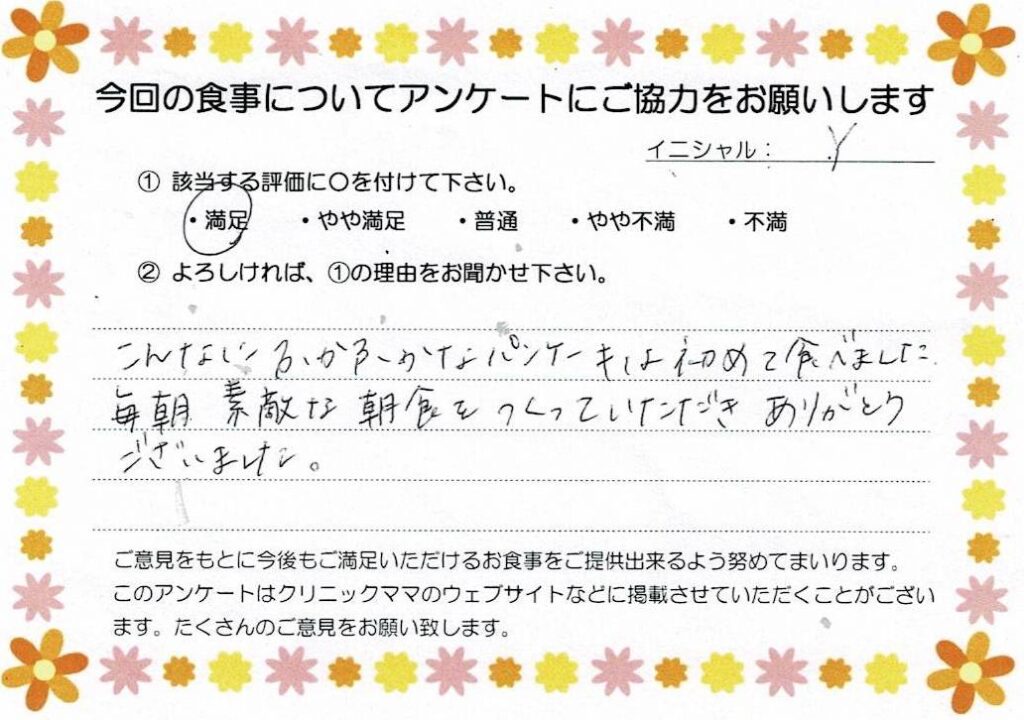 今回の食事についてアンケートにご協力をお願いします
イニシャル： Y
① 該当する評価に〇を付けて下さい。
・満足 ・やや満足 ・普通 ・やや不満 ・不満
② よろしければ、①の理由をお聞かせ下さい。
こんなにふかふかなパンケーキは初めて食べました
毎朝 素敵な朝食をつくっていただき ありがとう
ございました。
ご意見をもとに今後もご満足いただけるお食事をご提供出来るよう努めてまいります。
このアンケートはクリニックママのウェブサイトなどに掲載させていただくことがござい
ます。たくさんのご意見をお願い致します。